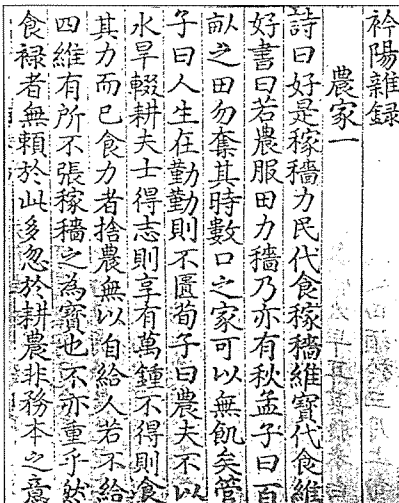 衿陽雜録
農家一
詩曰好是稼穡力民代食稼穡維寶代食維
好書曰若農服田力穡乃亦有秋孟子曰百
畝之田勿奪其時數口之家可以無飢矣管
子曰人生在勤勤則不匱荀子曰農夫不以
水旱輟耕夫士得志則享有萬鍾不得則食
其力而已食力者捨農無以自給人若不給
四維有所不張稼穡之為寶也不亦重乎然
食禄者無賴於此多忽於耕農非務本之意